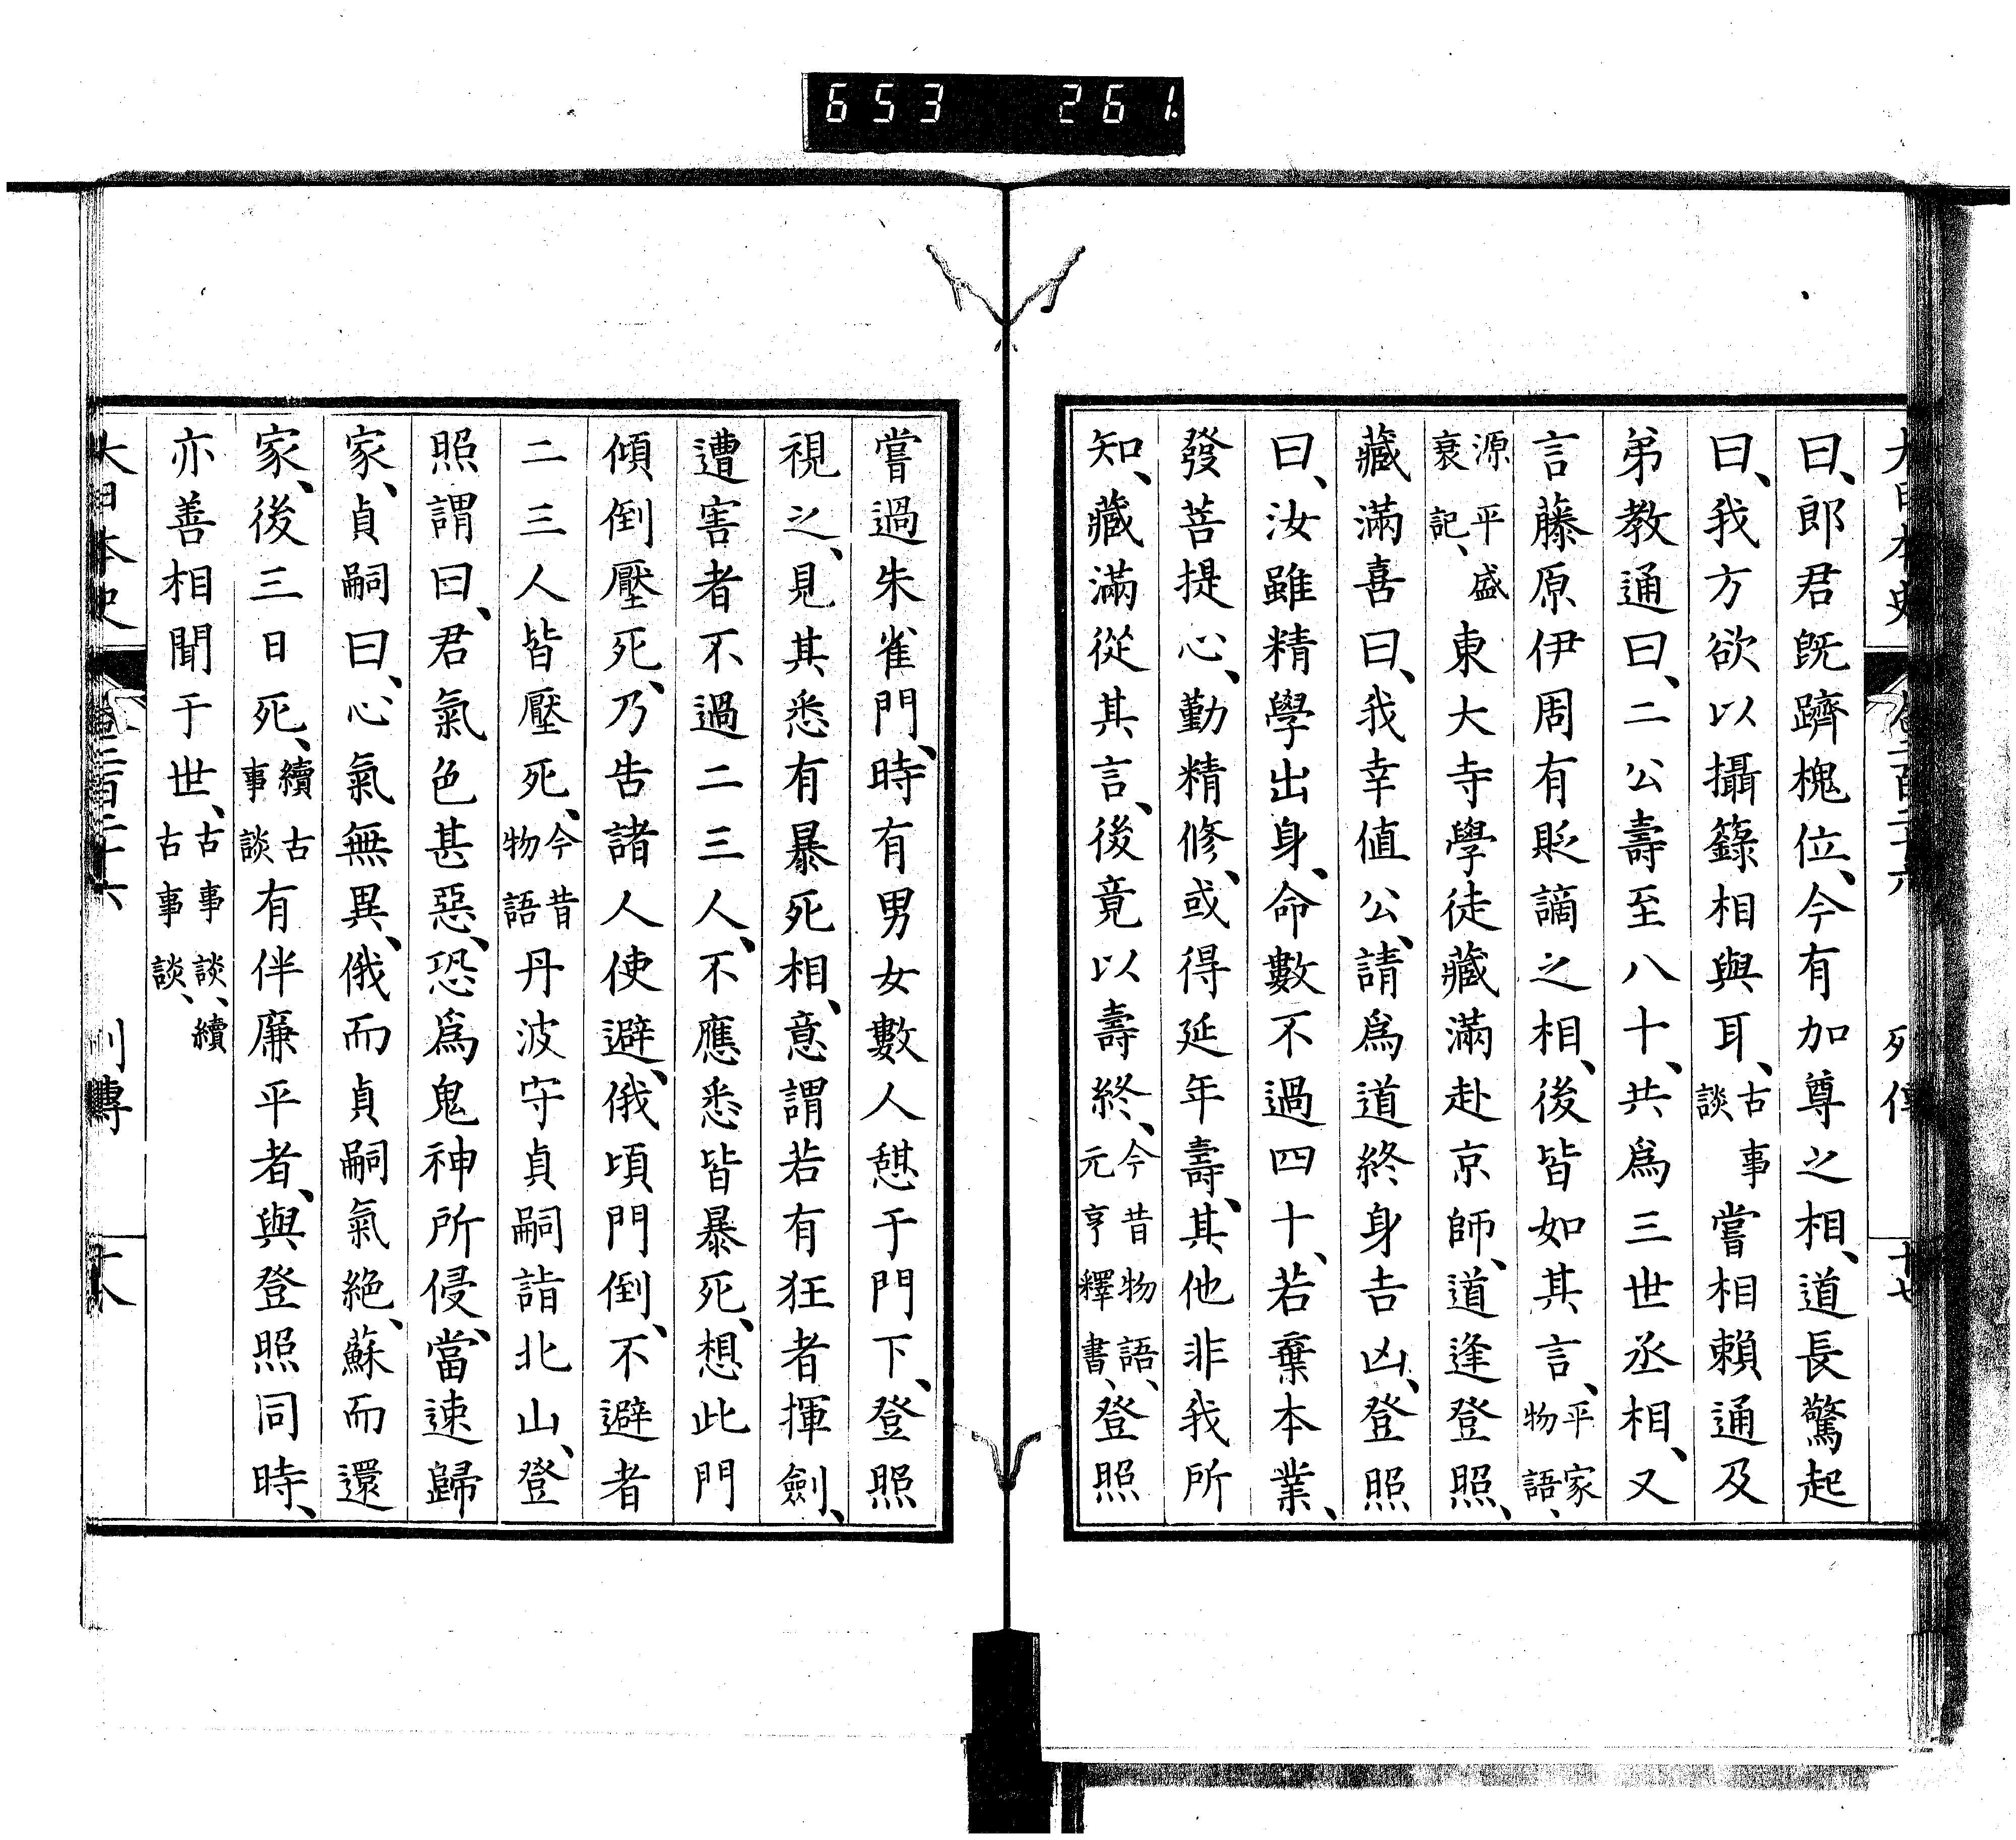 653 261.
大日本史 卷二百二十六 列傳 十七
曰、郎君既躋槐位、今有加尊之相、道長驚起
曰、我方欲以攝籙相與耳、古事談嘗相賴通及
弟教通曰、二公壽至八十、共爲三世丞相、又
言藤原伊周有貶謫之相、後皆如其言、平家物語、
源平盛衰記、東大寺學徒藏滿赴京師、道逢登照、
藏滿喜曰、我幸値公、請爲道終身吉凶、登照
曰、汝雖精學出身、命數不過四十、若棄本業、
發菩提心、勤精修、或得延年壽、其他非我所
知、藏滿從其言、後竟以壽終、今昔物語、元亨釋書、登照
嘗過朱雀門、時有男女數人憇于門下、登照
視之、見其悉有暴死相、意謂若有狂者揮劍、
遭害者不過二三人、不應悉皆暴死、想此門
傾倒壓死、乃告諸人使避、俄頃門倒、不避者
二三人皆壓死、今昔物語丹波守貞嗣詣北山、登
照謂曰、君氣色甚惡、恐爲鬼神所侵、當速歸
家、貞嗣曰、心氣無異、俄而貞嗣氣絶、蘇而還
家、後三日死、續古事談有伴廉平者、與登照同時、
亦善相聞于世、古事談、續古事談、
大日本史 卷二百二十六 列傳 十八